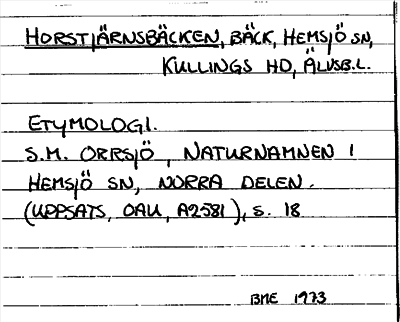 HORSTJÄRNSBÄCKEN, BÄCK, HEMSJÖ SN,
KULLINGS HD, ÄLVSB.L.
ETYMOLOGI.
S.M. ORRSJÖ, NATURNAMNEN I
HEMSJÖ SN, NORRA DELEN.
(UPPSATS, OAU, A2581), S. 18
BME 1973